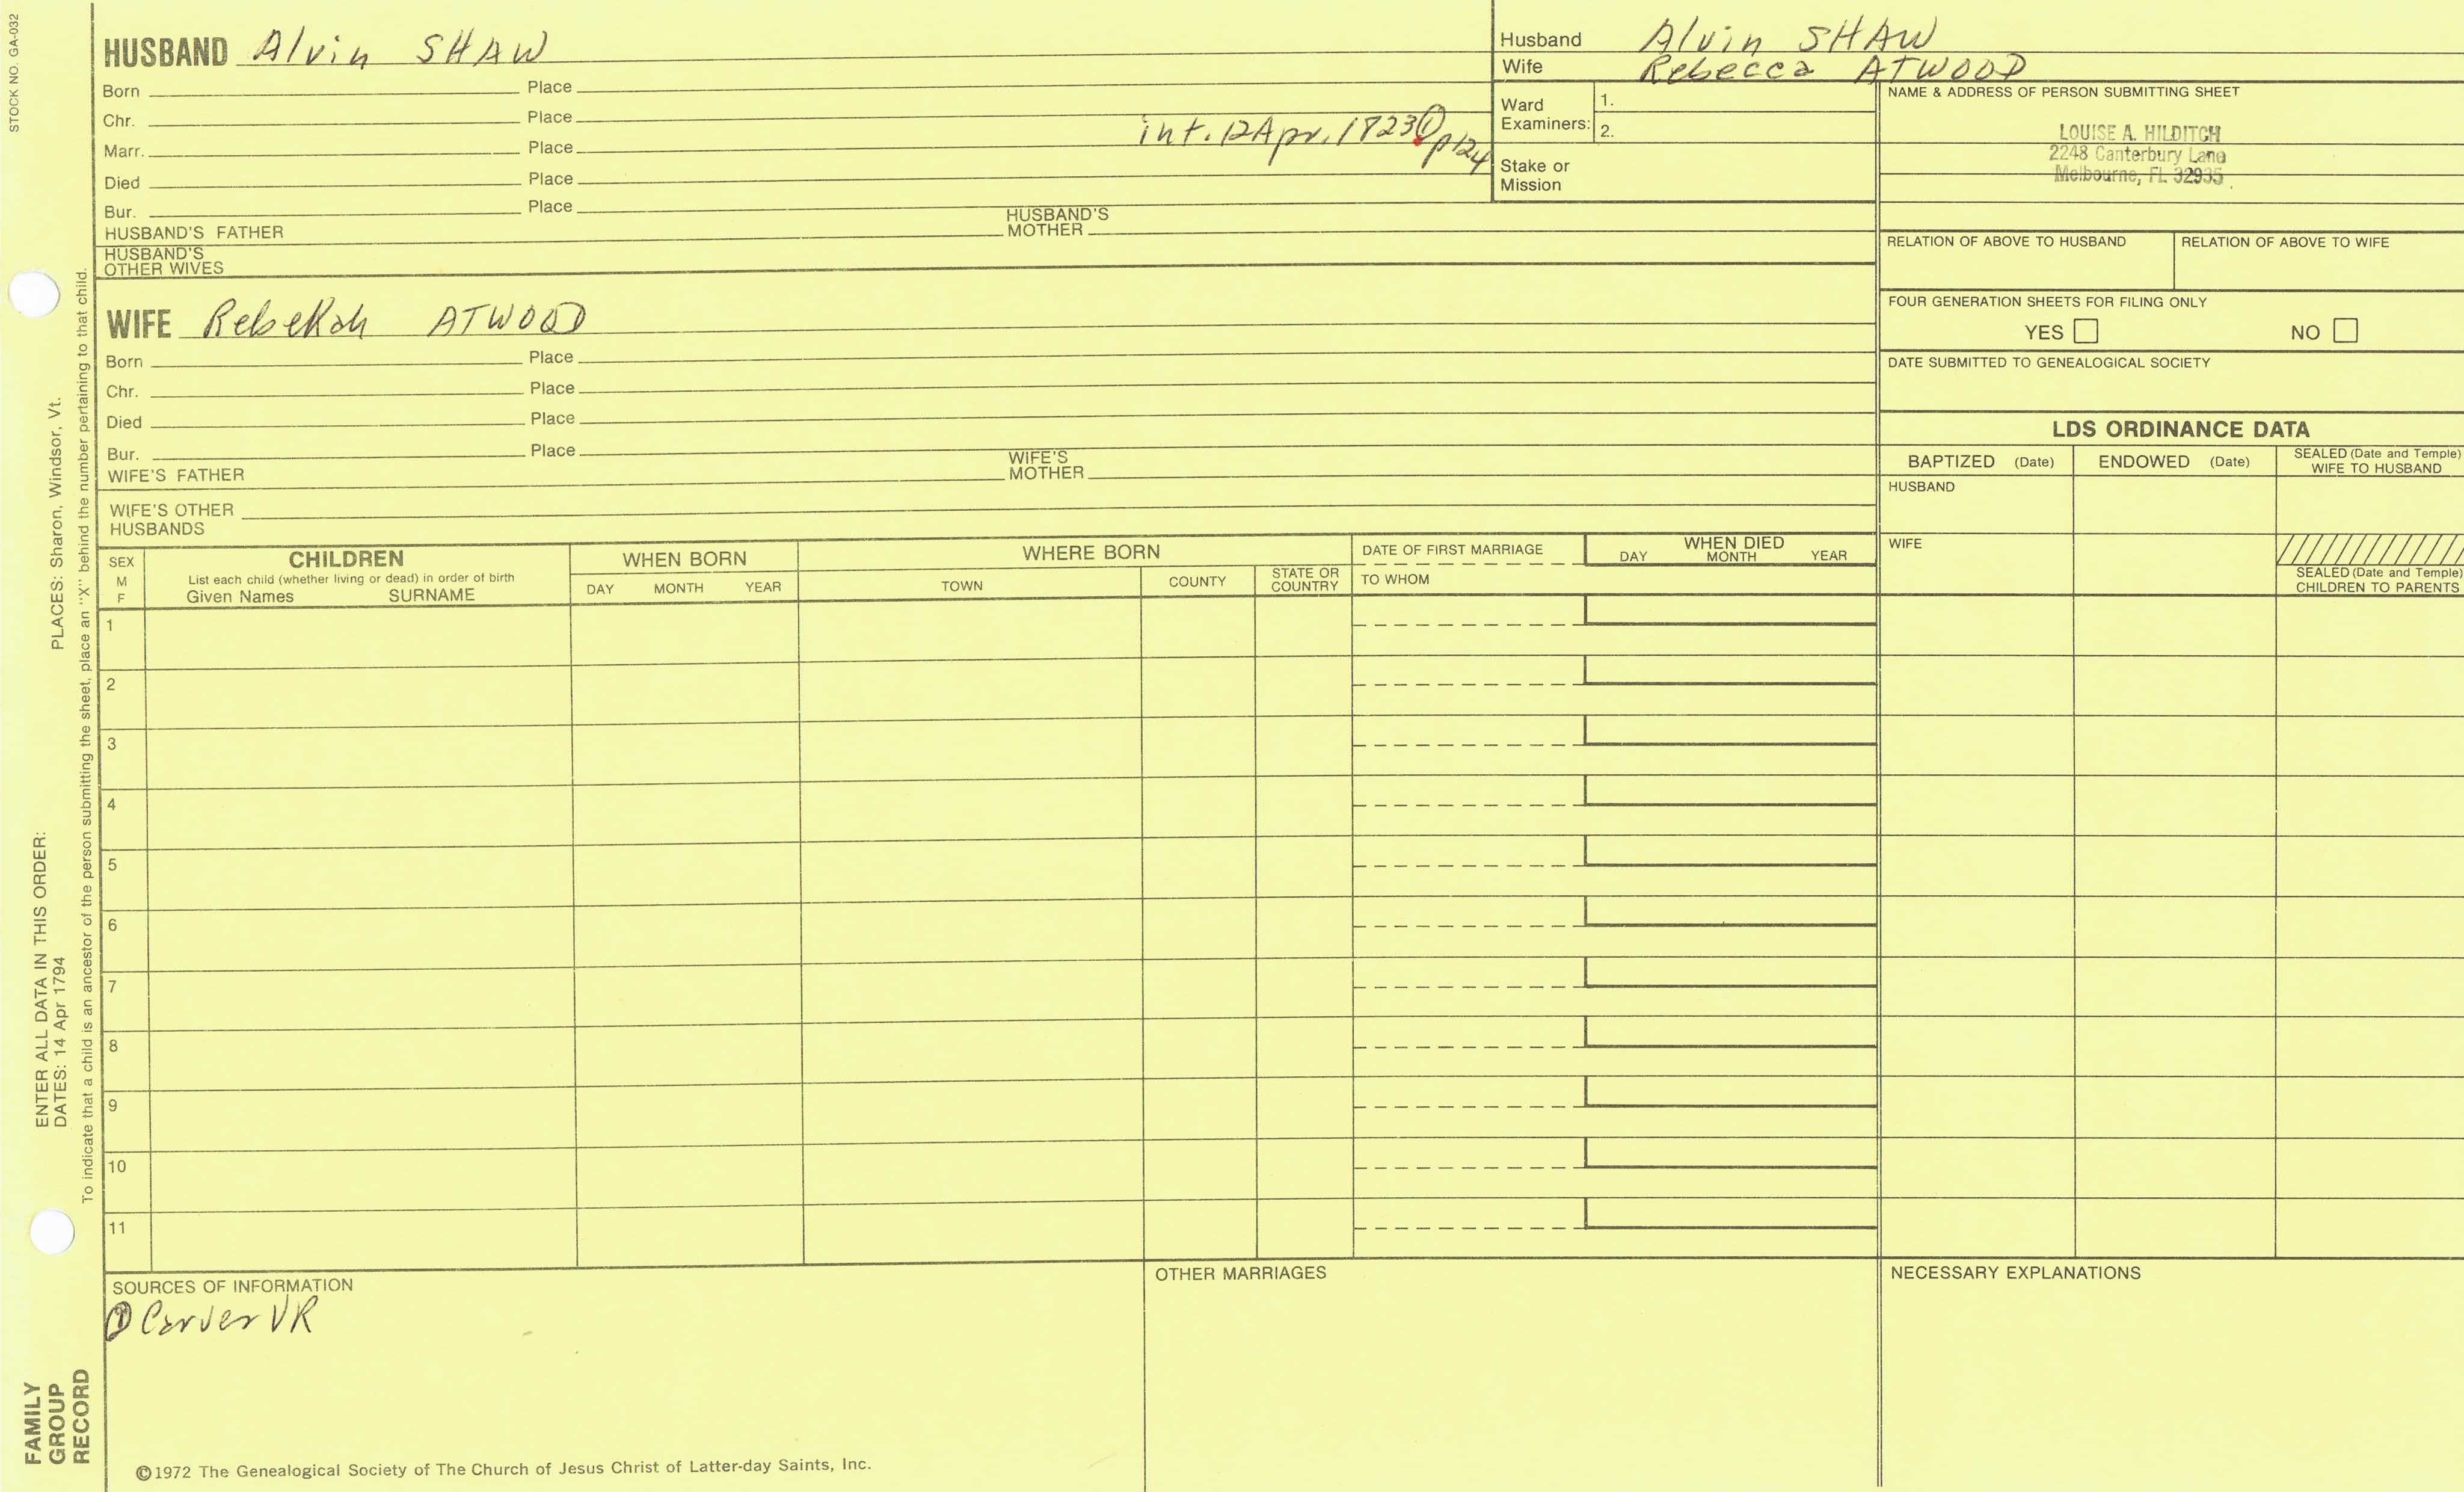 STOCK NO. GA-032
HUSBAND Alvin SHAW
Born Place
Chr. Place
Marr. Place int. 12 Apr. 1823 ① p124
Died Place
Bur. Place
HUSBAND'S FATHER HUSBAND'S MOTHER
HUSBAND'S OTHER WIVES
Husband Alvin SHAW
Wife Rebecca ATWOOD
Ward Examiners: 1.
2.
Stake or Mission
NAME & ADDRESS OF PERSON SUBMITTING SHEET
LOUISE A. HILDITCH
2248 Canterbury Lane
Melbourne, FL 32935
RELATION OF ABOVE TO HUSBAND RELATION OF ABOVE TO WIFE
FOUR GENERATION SHEETS FOR FILING ONLY
YES NO
DATE SUBMITTED TO GENEALOGICAL SOCIETY
WIFE Rebekah ATWOOD
Born Place
Chr. Place
Died Place
Bur. Place
WIFE'S FATHER WIFE'S MOTHER
WIFE'S OTHER HUSBANDS
LDS ORDINANCE DATA
BAPTIZED (Date) ENDOWED (Date) SEALED (Date and Temple) WIFE TO HUSBAND
HUSBAND
WIFE
SEALED (Date and Temple) CHILDREN TO PARENTS
SEX M F
CHILDREN
List each child (whether living or dead) in order of birth
Given Names SURNAME
WHEN BORN
DAY MONTH YEAR
WHERE BORN
TOWN COUNTY STATE OR COUNTRY
DATE OF FIRST MARRIAGE
TO WHOM
WHEN DIED
DAY MONTH YEAR
1
2
3
4
5
6
7
8
9
10
11
SOURCES OF INFORMATION
① Carver VR
OTHER MARRIAGES
NECESSARY EXPLANATIONS
©1972 The Genealogical Society of The Church of Jesus Christ of Latter-day Saints, Inc.
FAMILY GROUP RECORD
ENTER ALL DATA IN THIS ORDER:
DATES: 14 Apr 1794 PLACES: Sharon, Windsor, Vt.
To indicate that a child is an ancestor of the person submitting the sheet, place an "X" behind the number pertaining to that child.